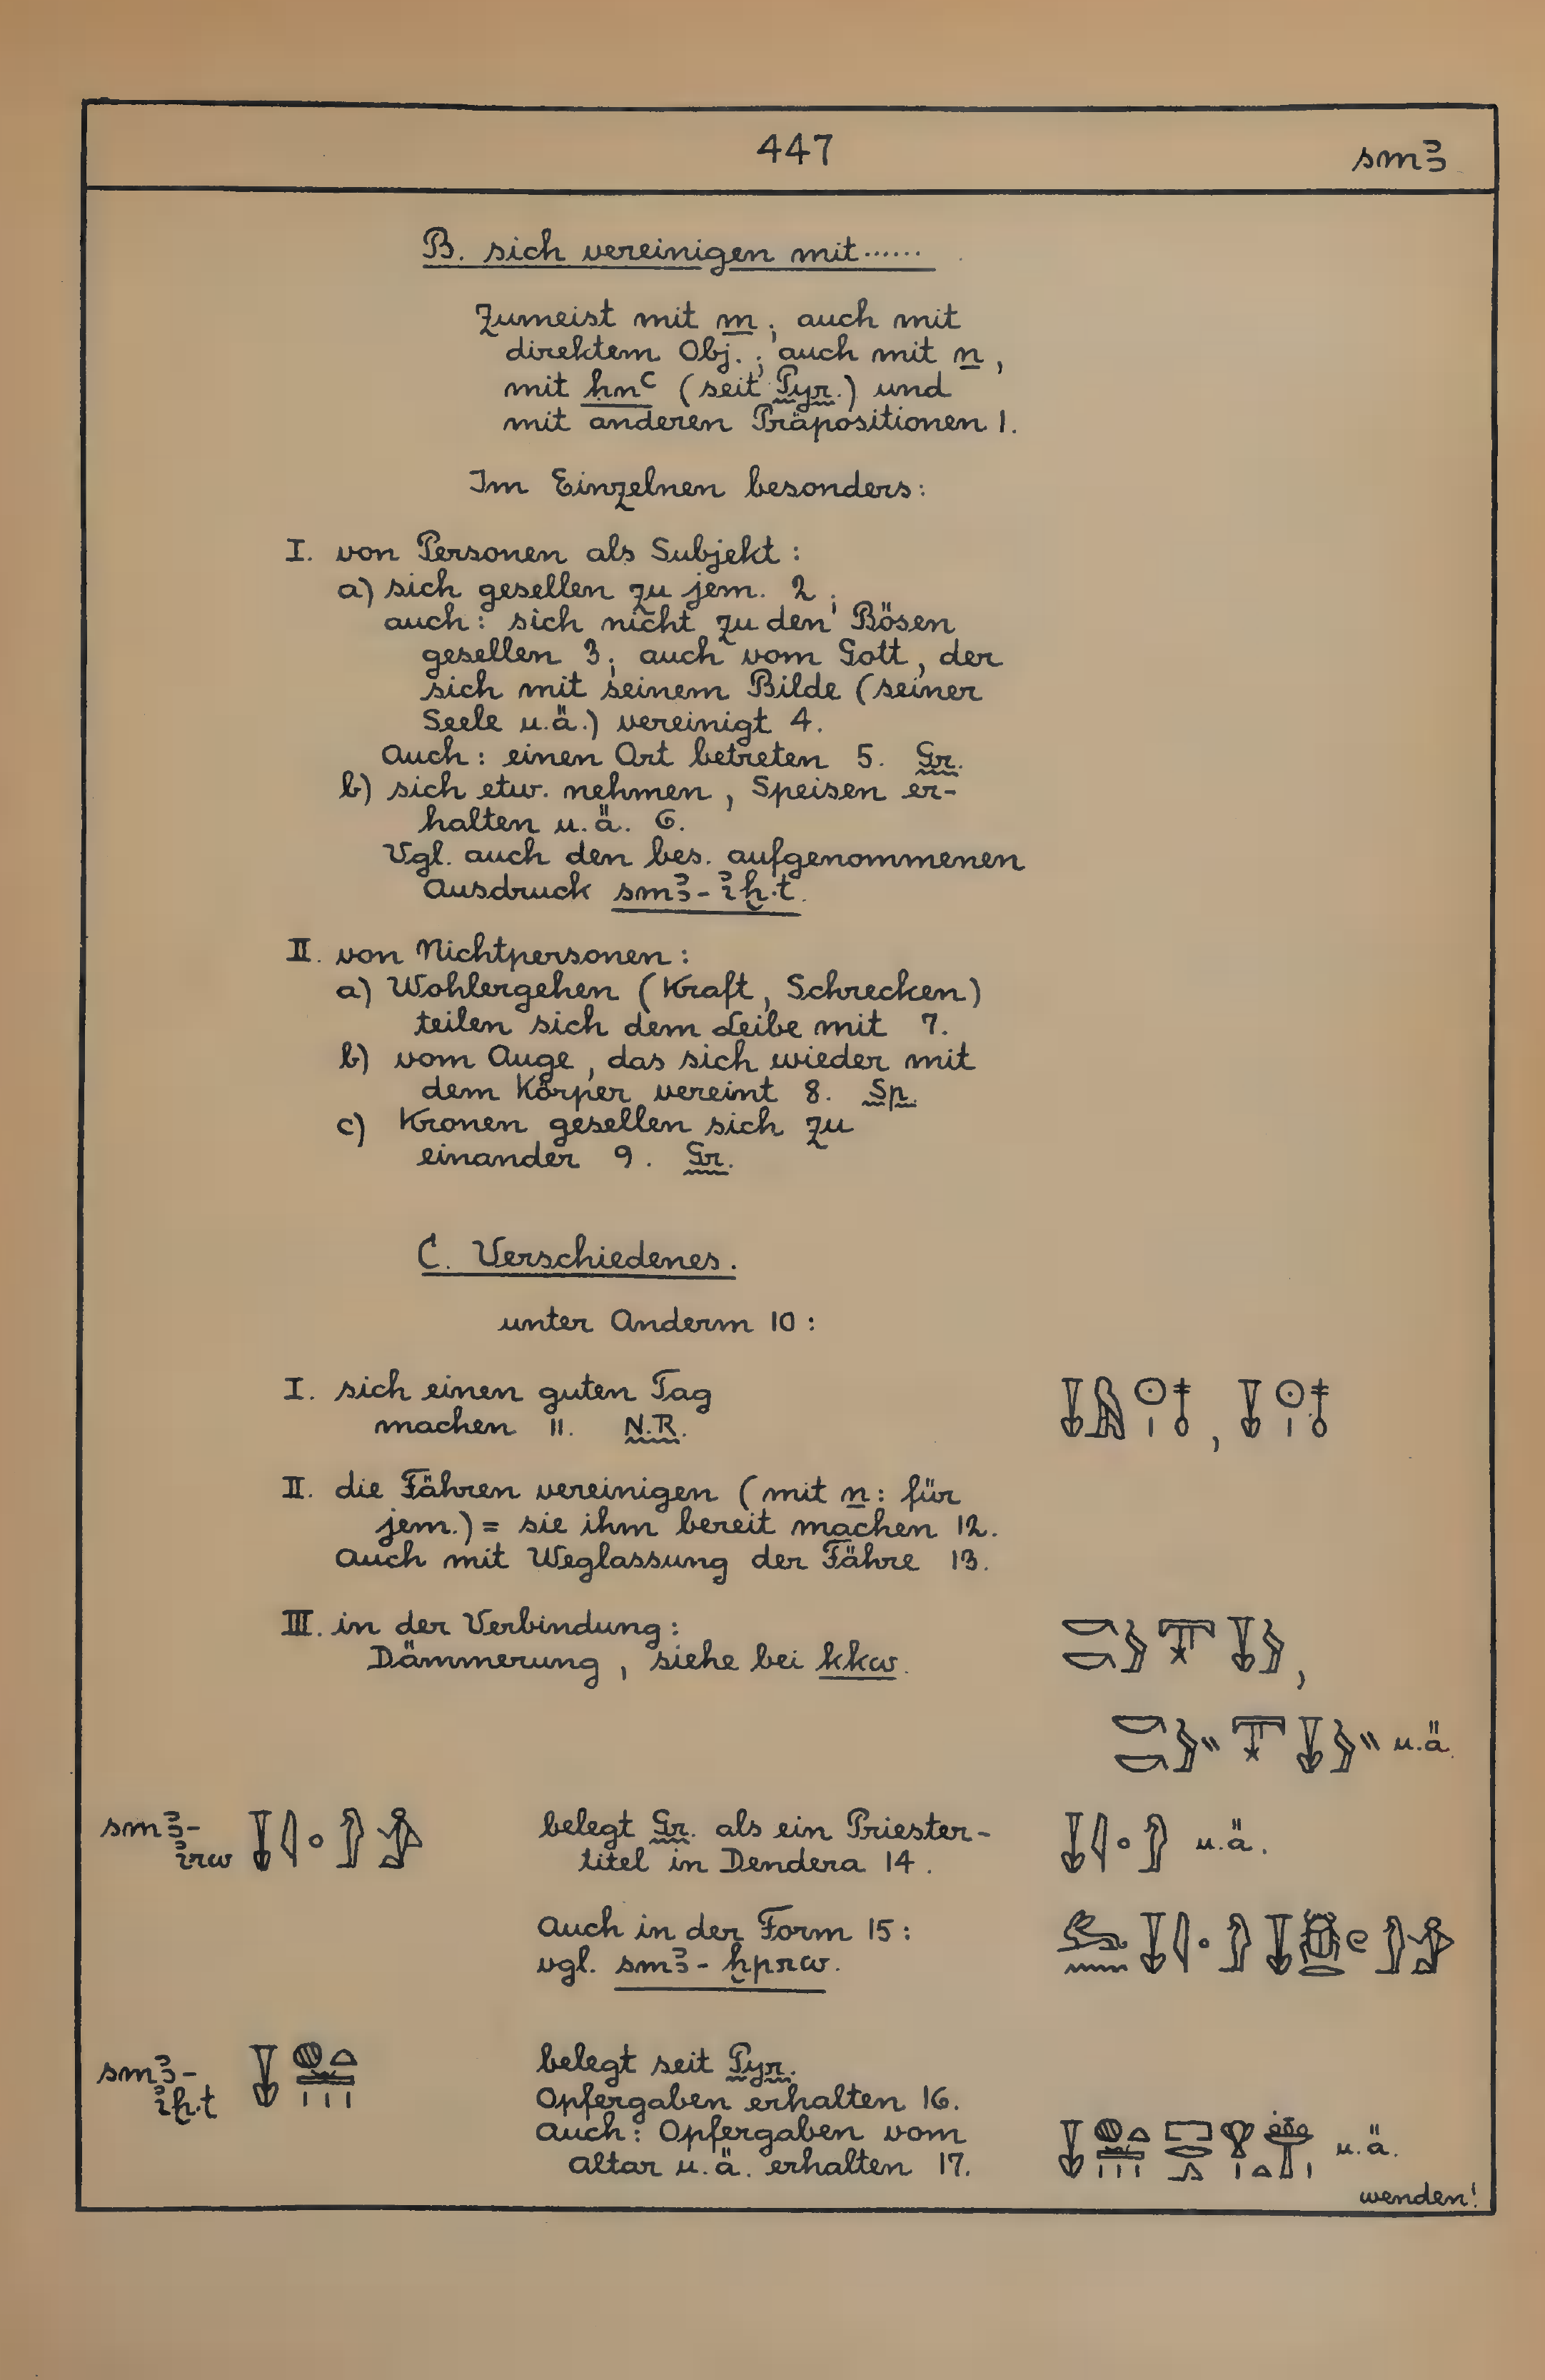 447
smꜣ
B. sich vereinigen mit ......
Zumeist mit m; auch mit
direktem Obj.; auch mit n,
mit ḥnꜥ (seit Pyr.) und
mit anderen Präpositionen 1.
Im Einzelnen besonders:
I. von Personen als Subjekt:
a) sich gesellen zu jem. 2;
auch: sich nicht zu den Bösen
gesellen 3; auch vom Gott, der
sich mit seinem Bilde (seiner
Seele u.ä.) vereinigt 4.
Auch: einen Ort betreten 5. Gr.
b) sich etw. nehmen, Speisen er-
halten u.ä. 6.
Vgl. auch den bes. aufgenommenen
Ausdruck smꜣ-iḫ.t.
II. von Nichtpersonen:
a) Wohlergehen (Kraft, Schrecken)
teilen sich dem Leibe mit 7.
b) vom Auge, das sich wieder mit
dem Körper vereint 8. Sp.
c) Kronen gesellen sich zu
einander 9. Gr.
C. Verschiedenes.
unter Anderm 10:
I. sich einen guten Tag
machen 11. N.R.
II. die Fähren vereinigen (mit n: für
jem.) = sie ihm bereit machen 12.
Auch mit Weglassung der Fähre 13.
III. in der Verbindung:
Dämmerung, siehe bei kkw.
u.ä.
smꜣ-
irw
belegt Gr. als ein Priester-
titel in Dendera 14.
u.ä.
Auch in der Form 15:
vgl. smꜣ-ḫprw.
smꜣ-
iḫ.t
belegt seit Pyr.
Opfergaben erhalten 16.
Auch: Opfergaben vom
Altar u.ä. erhalten 17.
u.ä.
wenden!